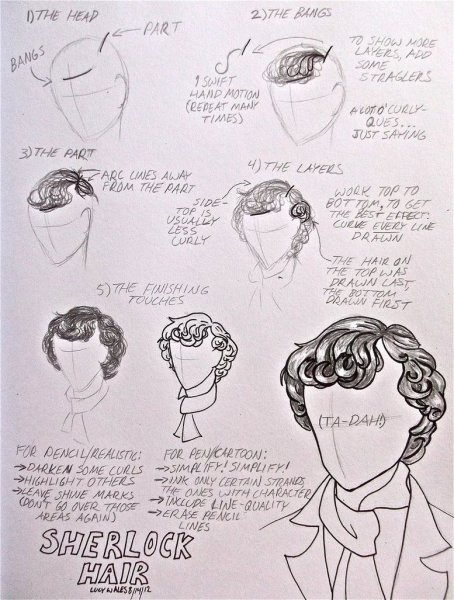 1) THE HEAD
PART
BANGS
2) THE BANGS
1 SWIFT
HAND MOTION
(REPEAT MANY
TIMES)
TO SHOW MORE
LAYERS, ADD
SOME
STRAGLERS
A LOT O' CURLY-
QUES...
JUST SAYING
3) THE PART
ARC LINES AWAY
FROM THE PART
4) THE LAYERS
SIDE-
TOP IS
USUALLY
LESS
CURLY
WORK TOP TO
BOTTOM, TO GET
THE BEST EFFECT:
CURVE EVERY LINE
DRAWN
THE HAIR ON
THE TOP WAS
DRAWN LAST,
THE BOTTOM
DRAWN FIRST
5) THE FINISHING
TOUCHES
FOR PENCIL/REALISTIC:
→DARKEN SOME CURLS
→HIGHLIGHT OTHERS
→LEAVE SHINE MARKS
(DON'T GO OVER THOSE
AREAS AGAIN)
FOR PEN/CARTOON:
→SIMPLIFY! SIMPLIFY!
→INK ONLY CERTAIN STRANDS,
THE ONES WITH CHARACTER
→INCLUDE LINE-QUALITY
→ERASE PENCIL
LINES
(TA-DAH!)
SHERLOCK
HAIR
LUCY WALES 8/14/12